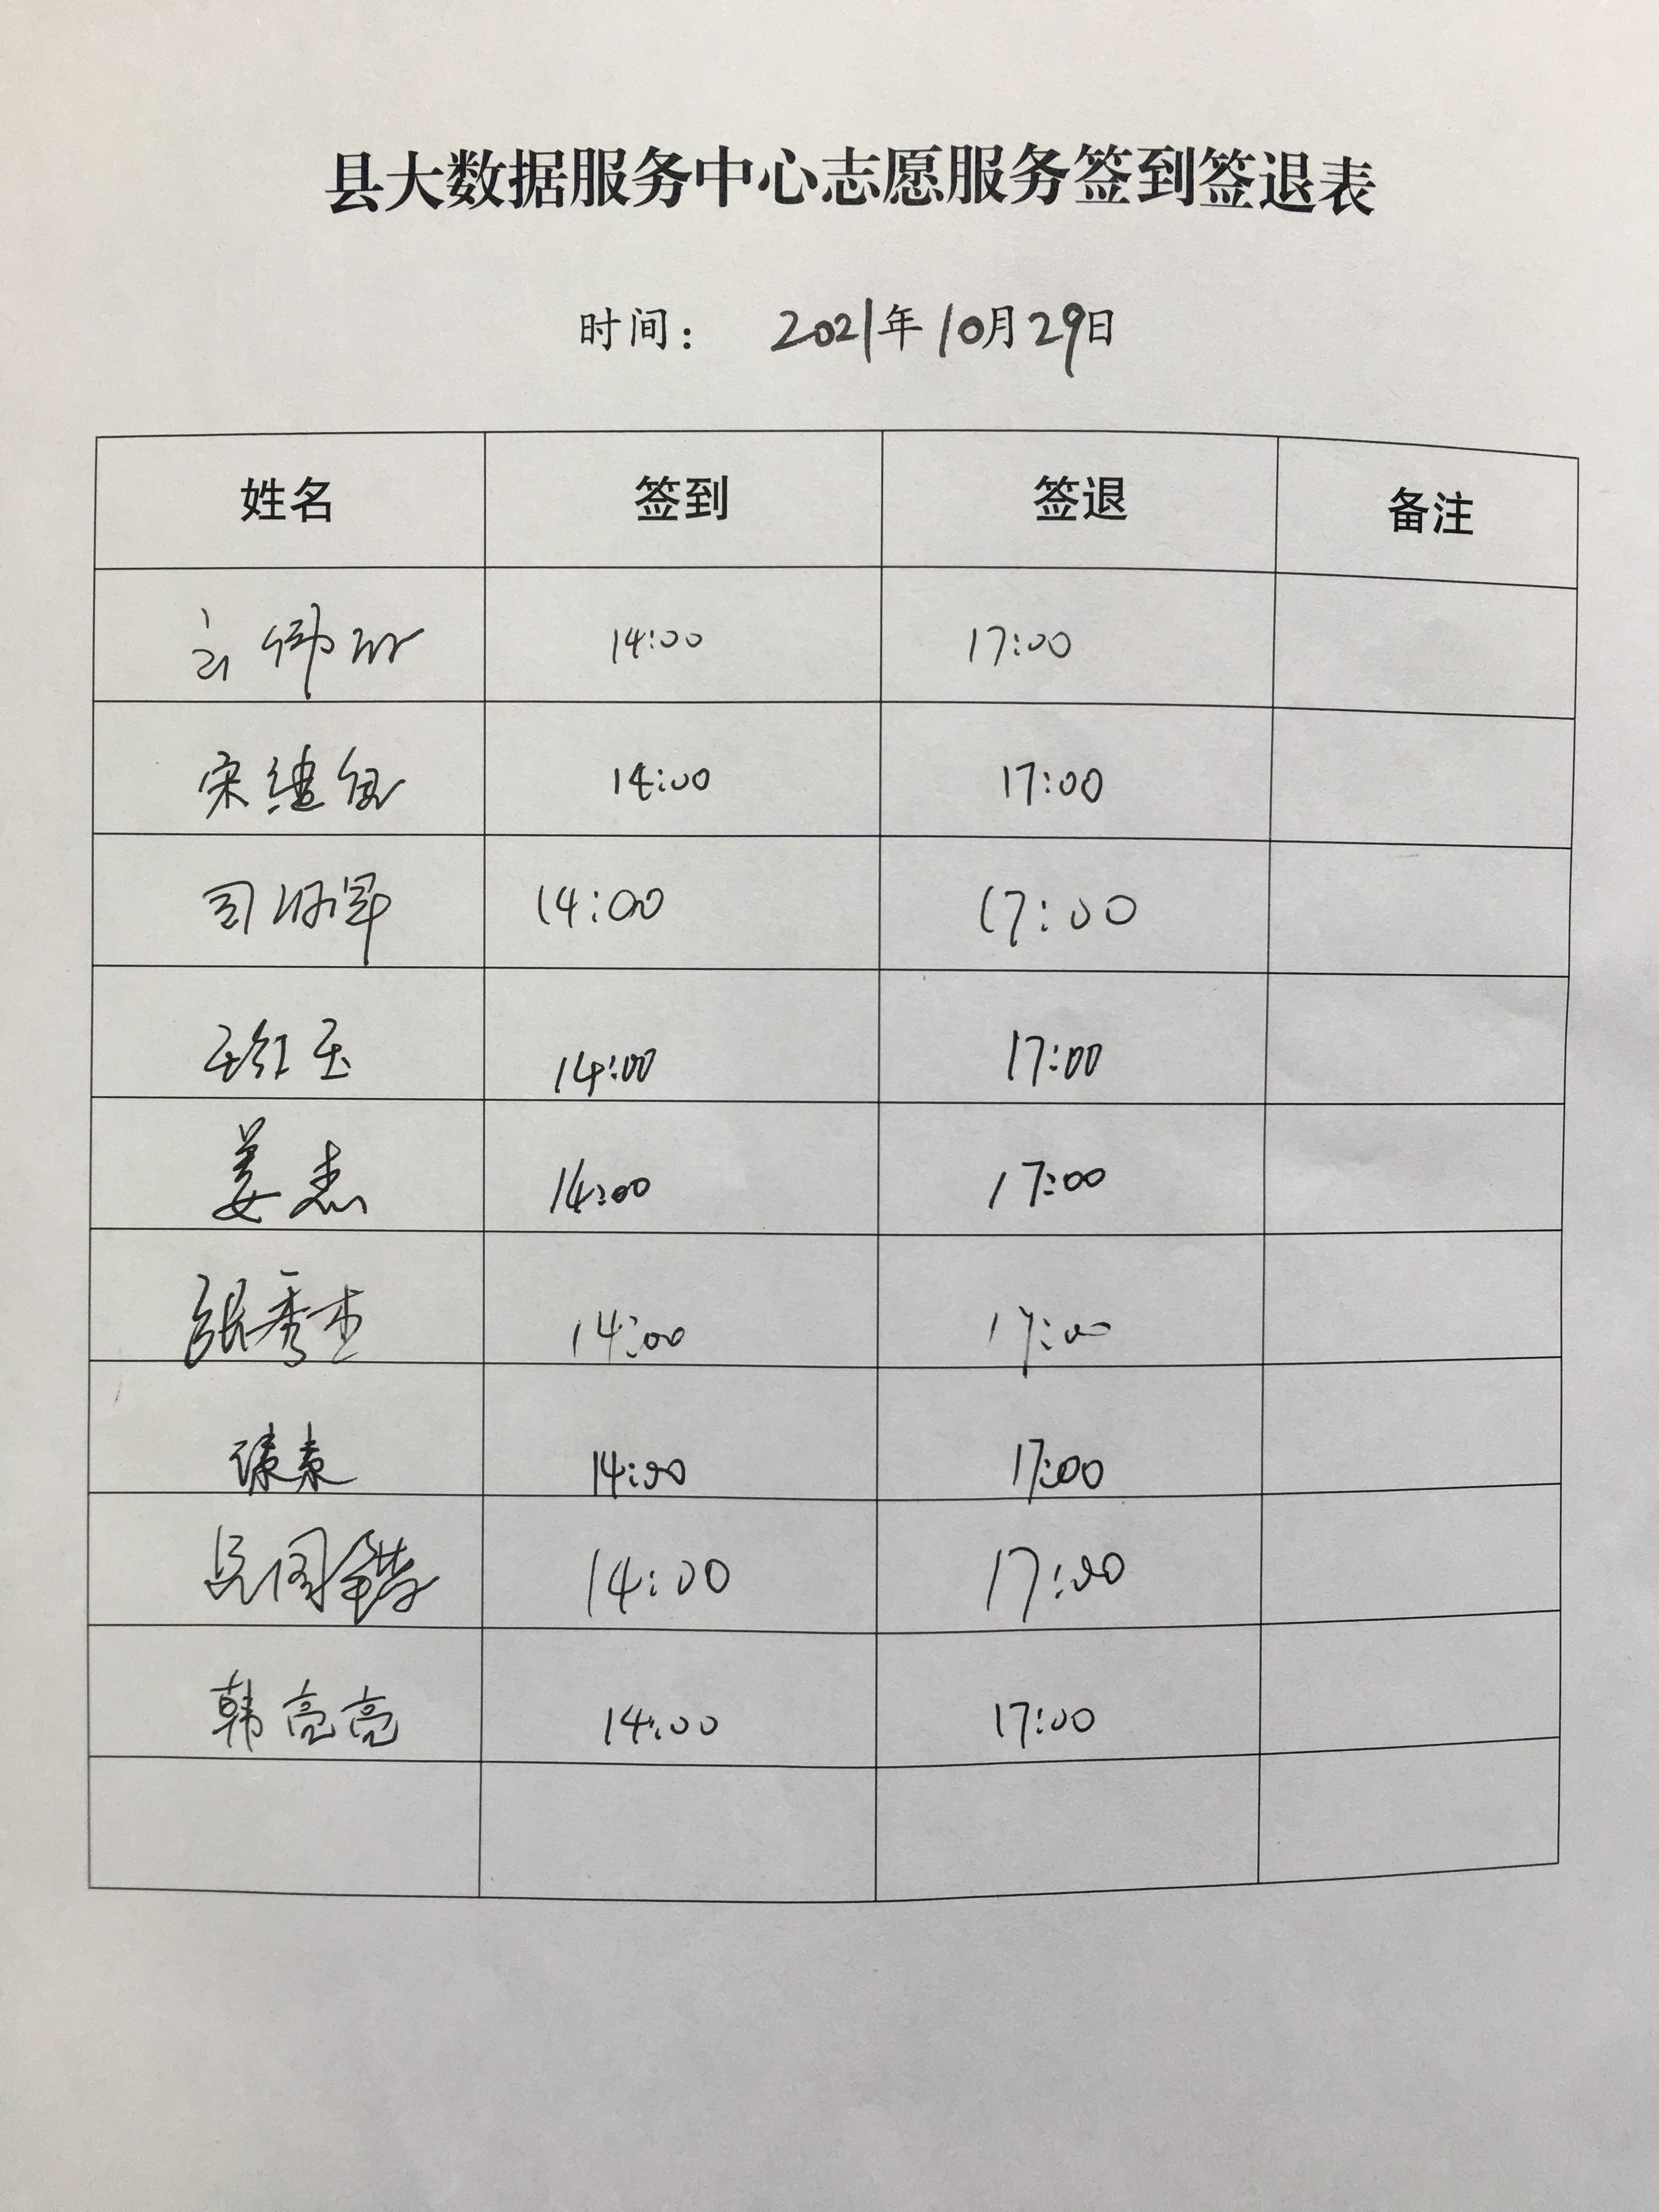 县大数据服务中心志愿服务签到签退表
时间： 2021年10月29日
姓名 签到 签退 备注
14:00 17:00
宋 14:00 17:00
司 14:00 17:00
14:00 17:00
姜杰 14:00 17:00
张秀杰 14:00 17:00
14:00 17:00
14:00 17:00
韩亮亮 14:00 17:00